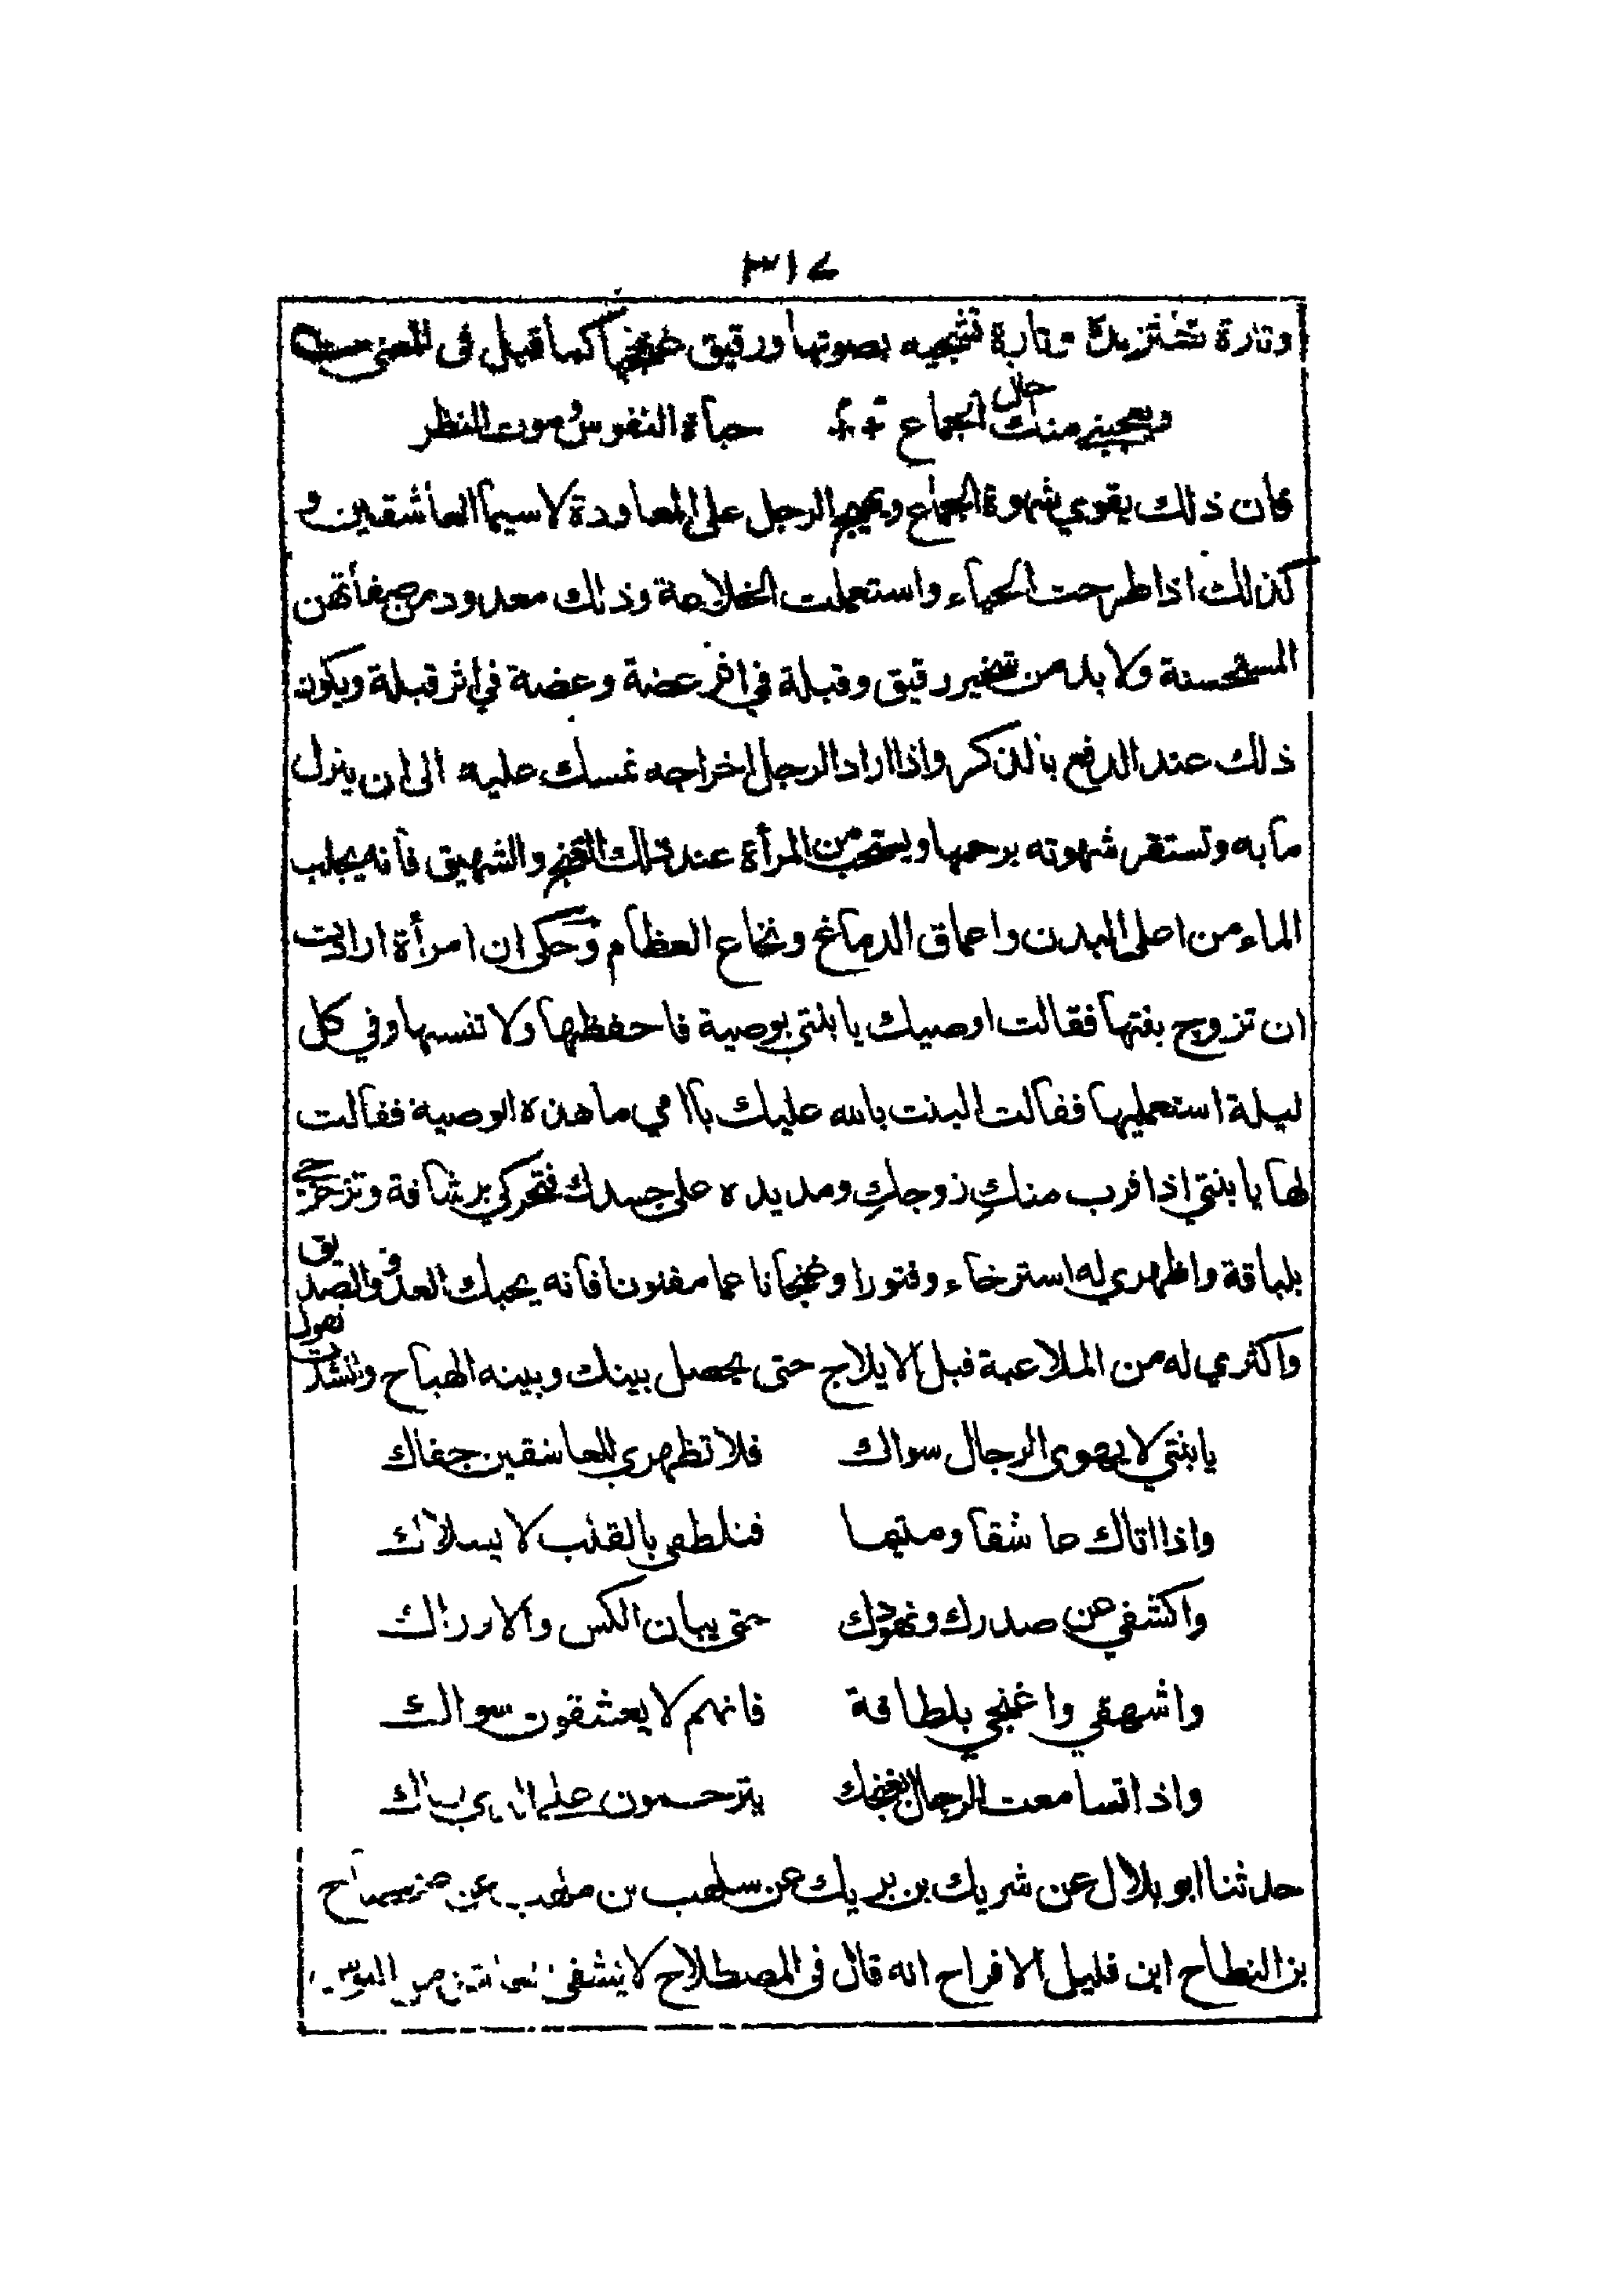 ٣١٧
وتارة وتارة تشجيه بصوتها ورقيق غنجها كما قيل فى المعنى
ويعجبني منك حال الجماع حياة النفوس وموت النظر
فان ذلك يقوي شهوة الجماع ويهيج الرجل على المعاودة لا سيما العاشقين و
كذلك اذا طرحت الحياء واستعملت الخلاعة وذلك معدود من صفاتهن
المستحسنة ولا بد من شخير رقيق وقبلة في اثر عضة وعضة في اثر قبلة ويكون
ذلك عند الدفع بالذكر واذا اراد الرجل اخراجه تمسك عليه الى ان ينزل
ما به وتستقر شهوته برحمها ويستحب من المرأة عند ذلك الغنج والشهيق فانه يجلب
الماء من اعلى البدن واعماق الدماغ ونخاع العظام وحكى ان امرأة ارادت
ان تزوج بنتها فقالت اوصيك يا بنتي بوصية فاحفظيها ولا تنسيها وفي كل
ليلة استعمليها فقالت البنت بالله عليك يا امي ما هذه الوصية فقالت
لها يا بنتي اذا قرب منكِ زوجكِ ومد يده على جسدك فتحركي برشاقة وتزحزحي
بلباقة واظهري له استرخاء وفتورا وغنجا فانه يحبك العدو والصديق
واكثري له من الملاعبة قبل الايلاج حتى يحصل بينك وبينه الهياج وانشدت تقول
يا بنتي لا يهوى الرجال سواك فلا تظهري للعاشقين جفاك
واذا اتاك عاشقا ومتيما فتلطفي بالقلب لا يسلاك
واكشفي عن صدرك ونهودك حتى يبان الكس والاوراك
واشهقي واغنجي بلطافة فانهم لا يعشقون سواك
واذا تسامعت الرجال بغنجك يترحمون على
حدثنا ابو بلال عن شريك بن بريك عن سلهب بن عن
بن النطاح ابن قليل الافراح انه قال فى المصطلاح لا ينشفى